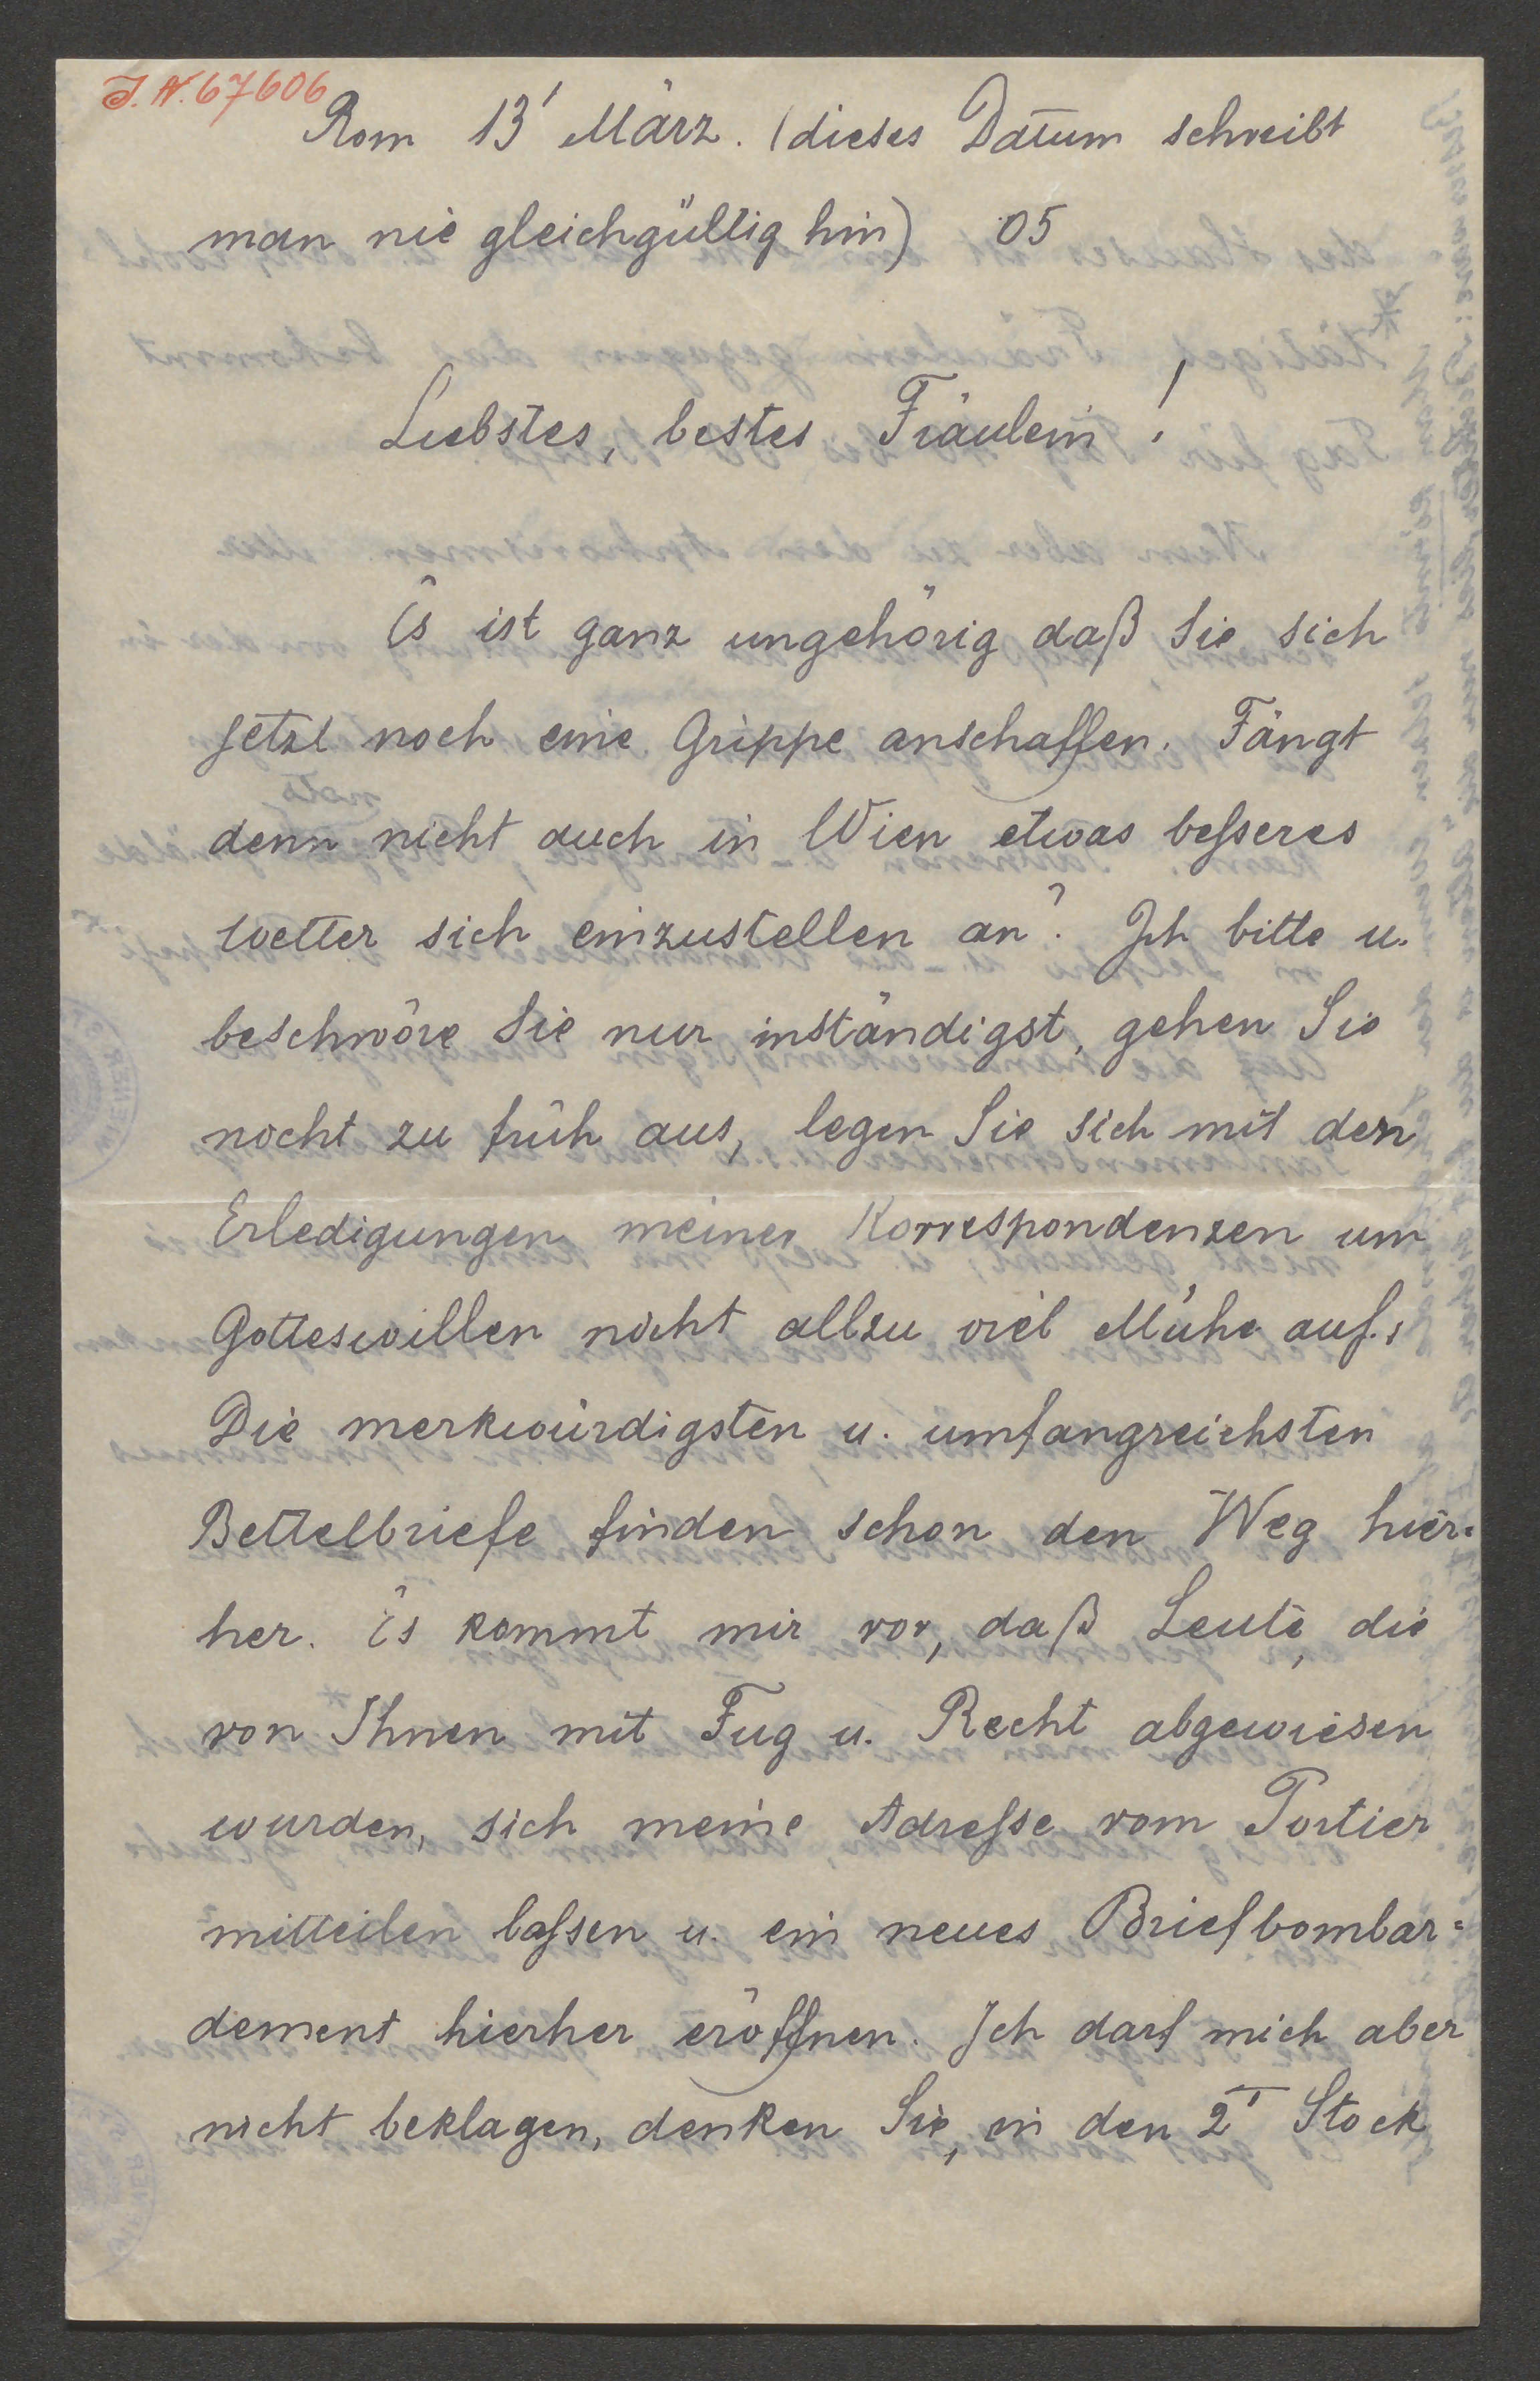 J. N. 67606
Rom 13' März. (dieses Datum schreibt
man nie gleichgültig hin) 05
Liebstes, bestes Fräulein!
Es ist ganz ungehörig daß Sie sich
jetzt noch eine Grippe anschaffen. Fängt
denn nicht auch in Wien etwas besseres
Wetter sich einzustellen an? Ich bitte u.
beschwöre Sie nur inständigst, gehen Sie
nicht zu früh aus, legen Sie sich mit den
Erledigungen meiner Korrespondenzen um
Gotteswillen nicht allzu viel Mühe auf.
Die merkwürdigsten u. umfangreichsten
Bettelbriefe finden schon den Weg hier=
her. Es kommt mir vor, daß Leute, die
von Ihnen mit Fug u. Recht abgewiesen
wurden, sich meine Adresse vom Portier
mitteilen lassen u. ein neues Briefbombar=
dement hierher eröffnen. Ich darf mich aber
nicht beklagen, denken Sie, in den 2' Stock